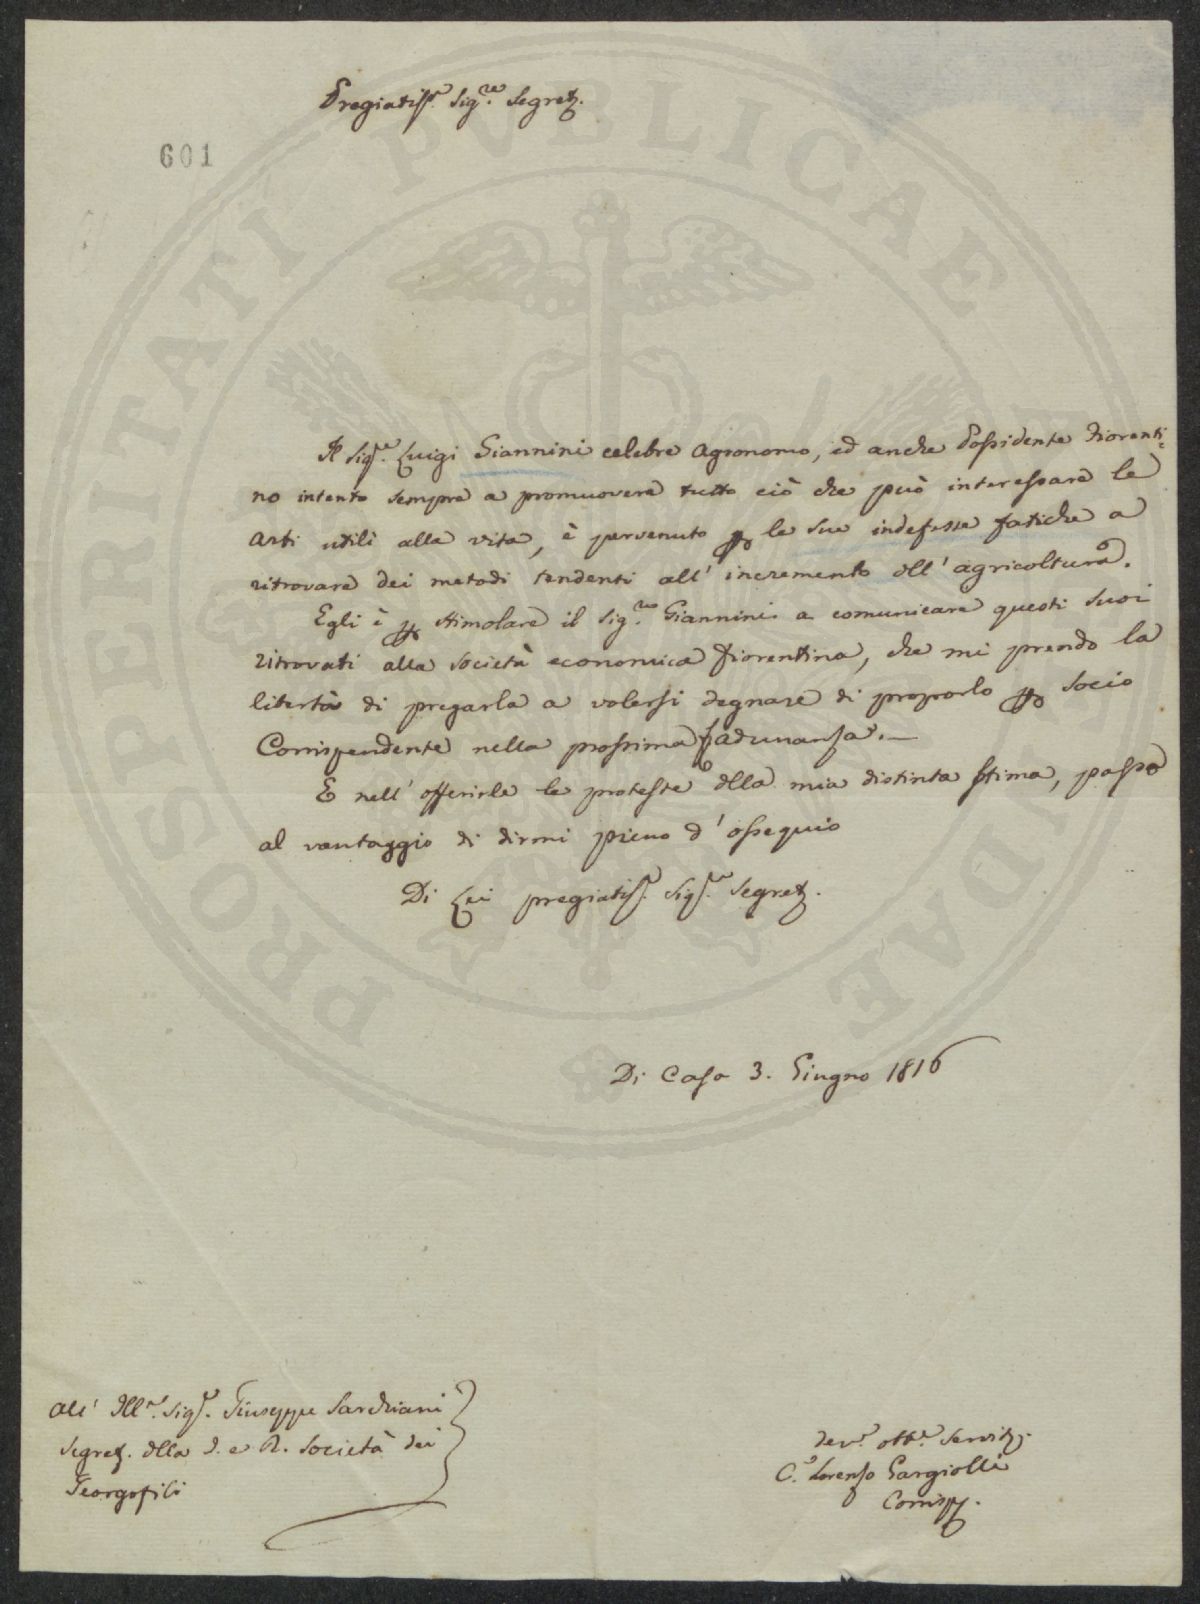 Pregiatiss.º Sig.re Segret.
601
Il Sig.re Luigi Giannini celebre Agronomo, ed anche Possidente Fiorenti-
no intento sempre a promuovere tutto ciò che può interessare le
arti utili alla vita, è pervenuto p le sue indefesse fatiche a
ritrovare dei metodi tendenti all' incremento dll' agricoltura.
Egli è p stimolare il Sig.re Giannini a comunicare questi suoi
ritrovati alla società economica fiorentina, che mi prendo la
libertà di pregarla a volersi degnare di proporlo p Socio
Corrispendente nella prossima adunanza.—
E nell' offerirle le proteste dlla mia distinta stima, passo
al vantaggio di dirmi pieno d' ossequio
Di Lei pregiatiss.º Sig.re Segret.
Di Casa 3. Giugno 1816
All' Ill.º Sig.re Giuseppe Sarchiani
Segret. dlla I. e R. Società dei
Georgofili
dev.º obb.º Servit.
C.º Lorenzo Gargiolli
Corrisp.
PROSPERITATI PVBLICAE